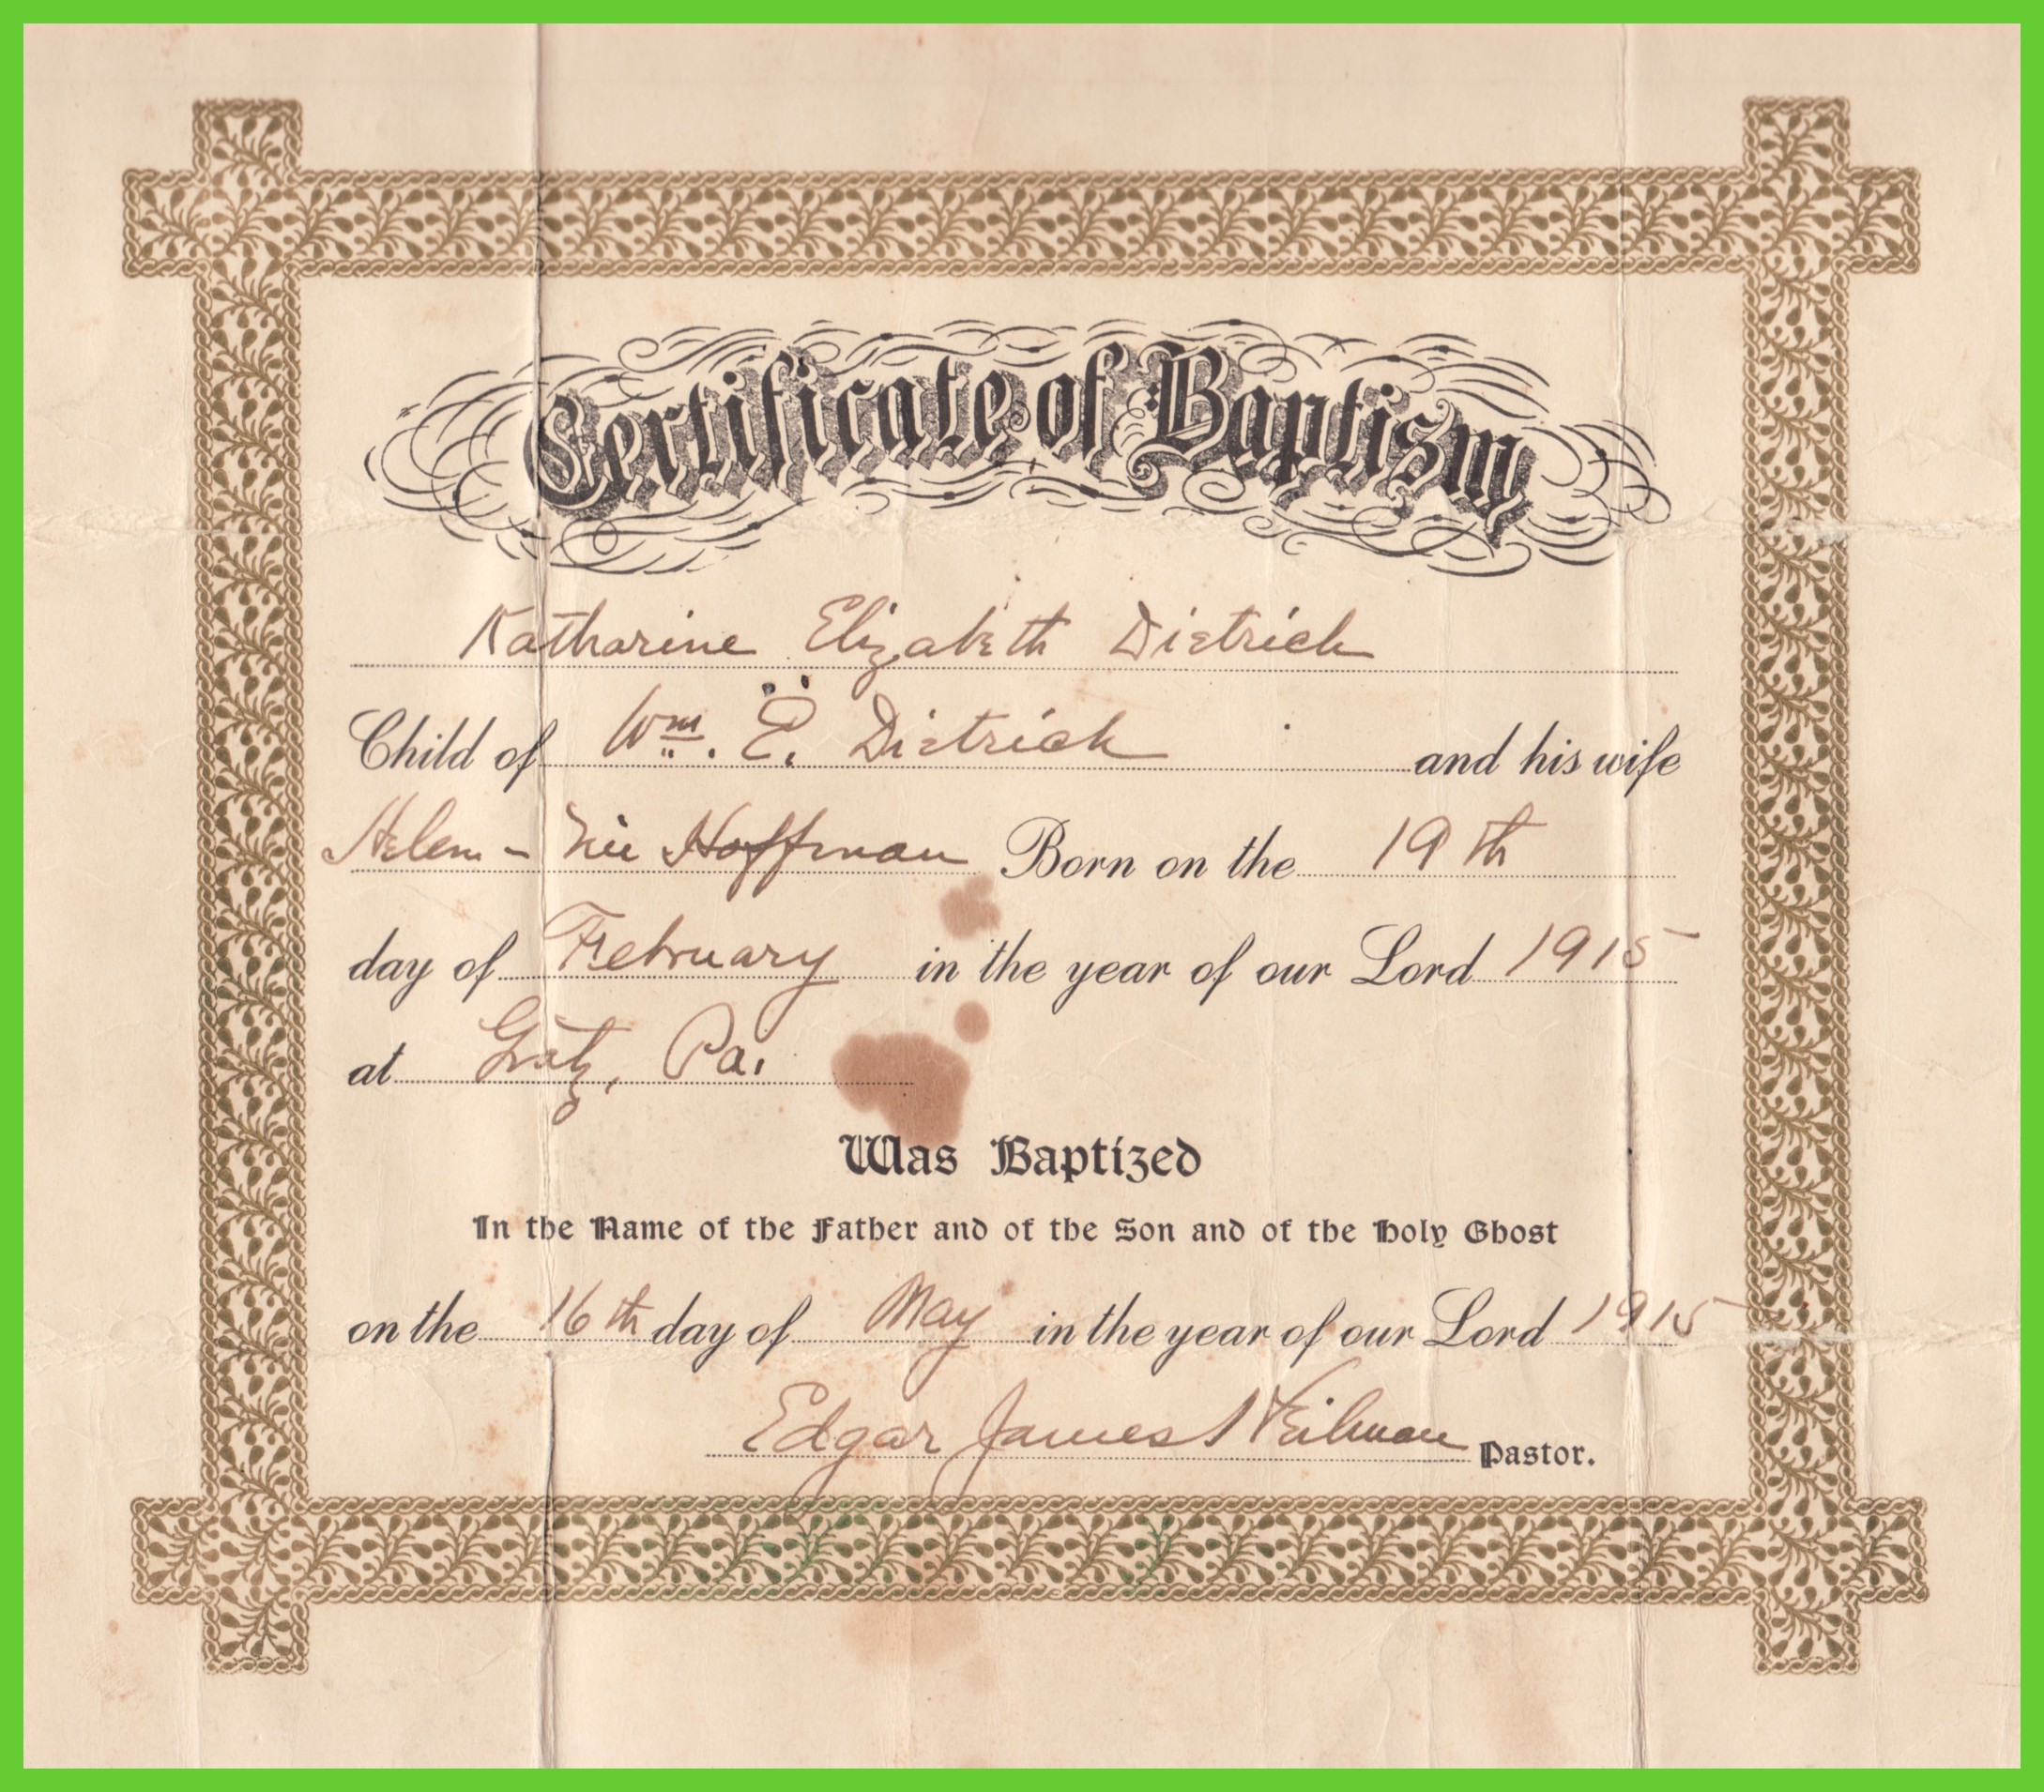 Certificate of Baptism
Katharine Elizabeth Dietrich
Child of Wm. E. Dietrich and his wife
Helen - Nee Hoffman Born on the 19th
day of February in the year of our Lord 1915
at Gratz, Pa.
Was Baptized
In the Name of the Father and of the Son and of the Holy Ghost
on the 16th day of May in the year of our Lord 1915
Edgar James Heilman Pastor.